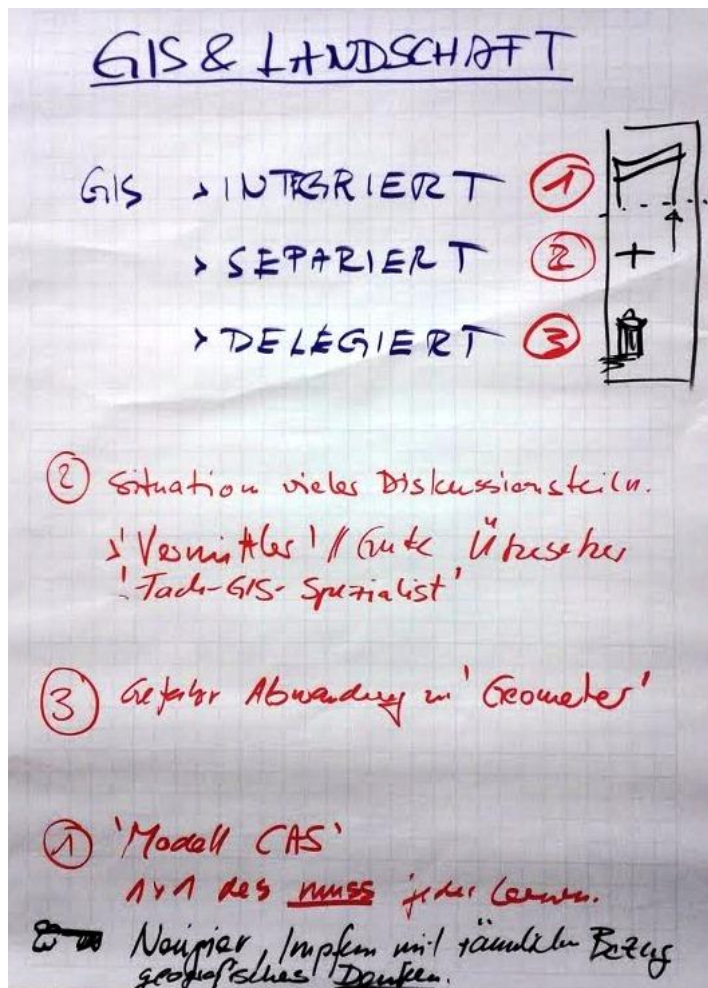 GIS & LANDSCHAFT
GIS > INTEGRIERT ①
> SEPARIERT ②
> DELEGIERT ③
② Situation vieler Diskussionsteiln.
'Vermittler' // Gute Übersetzer
'Fach-GIS-Spezialist'
③ Gefahr Abwandlung zu 'Geometer'
① 'Modell CAS'
1x1 des muss jeder lernen.
Impfen mit räumlichen Bezug
geografisches Denken.